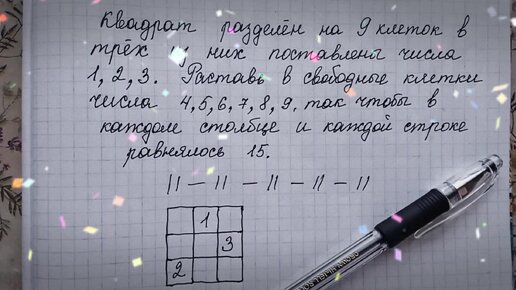 Квадрат разделён на 9 клеток в
трёх из них поставлены числа
1, 2, 3. Расставь в свободные клетки
числа 4, 5, 6, 7, 8, 9. так чтобы в
каждом столбце и каждой строке
равнялось 15.
11 — 11 — 11 — 11 — 11
1
3
2